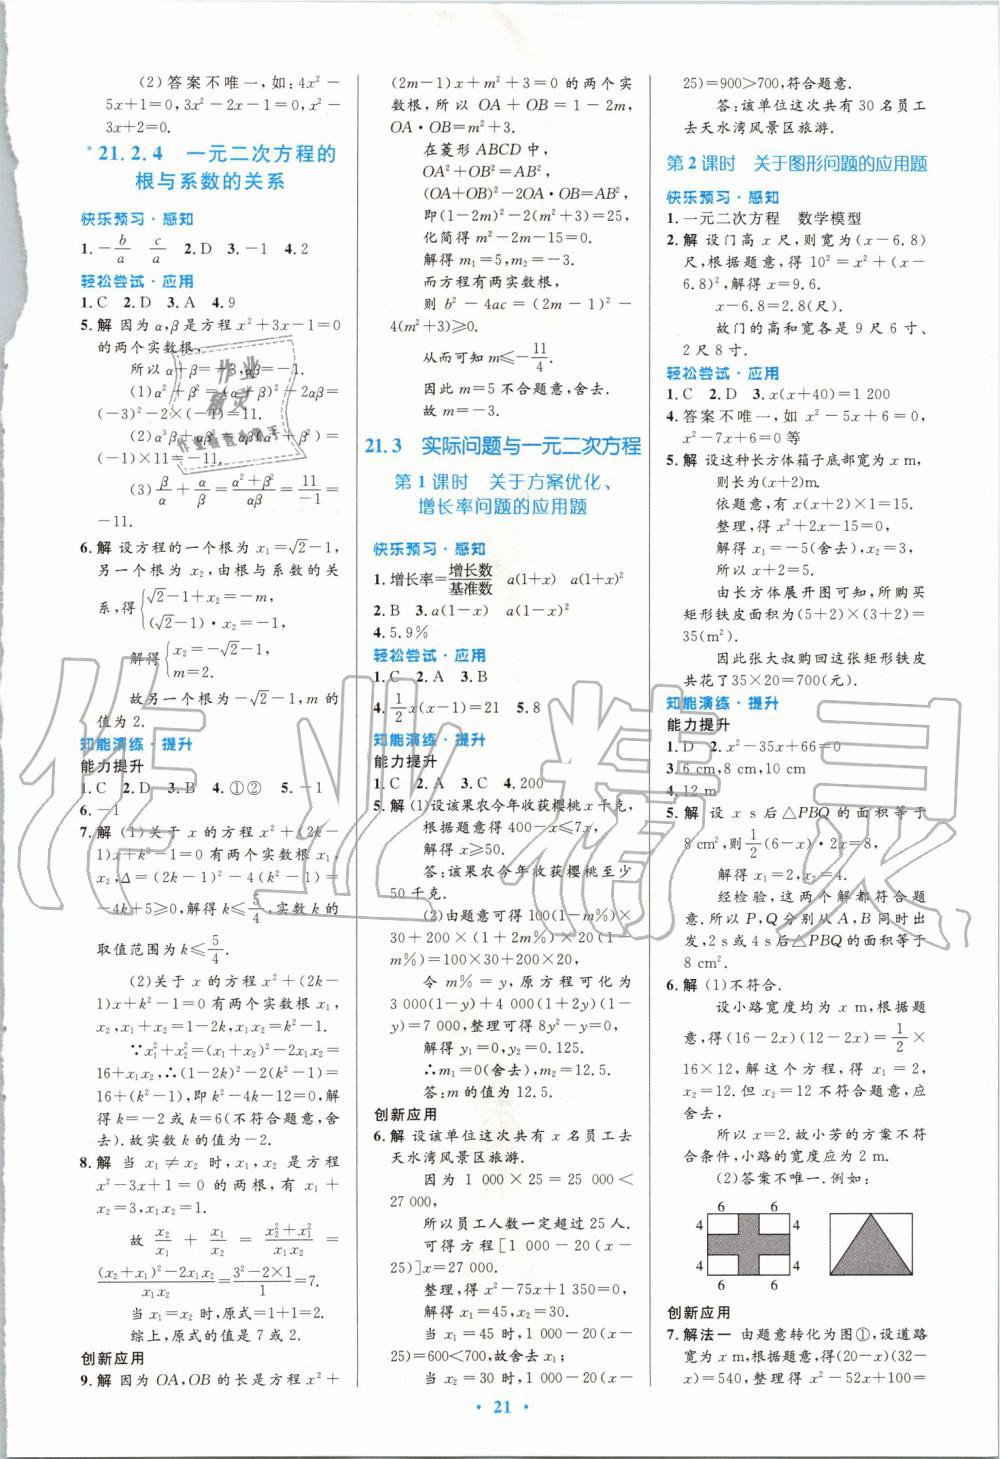 (2)答案不唯一,如:4x²-
5x+1=0,3x²-2x-1=0,x²-
3x+2=0.
*21.2.4 一元二次方程的
根与系数的关系
快乐预习·感知
1.-b/a c/a 2.D 3.-1 4.2
轻松尝试·应用
1.C 2.D 3.A 4.9
5.解 因为α,β是方程x²+3x-1=0
的两个实数根,
所以α+β=-3,αβ=-1.
(1)α²+β²=(α+β)²-2αβ=
(-3)²-2×(-1)=11.
(2)α³β+αβ³=αβ(α²+β²)=
(-1)×11=-11.
β/α+α/β=(α²+β²)/αβ=11/-1=
-11.
6.解 设方程的一个根为x₁=√2-1,
另一个根为x₂,由根与系数的关
系,得{√2-1+x₂=-m,
(√2-1)·x₂=-1,
解得{x₂=-√2-1,
m=2.
故另一个根为-√2-1,m的
值为2.
知能演练·提升
能力提升
1.C 2.D 3.B 4.①② 5.-1
6.-1
7.解 (1)关于x的方程x²+(2k-
1)x+k²-1=0有两个实数根x₁,
x₂,Δ=(2k-1)²-4(k²-1)=
-4k+5≥0,解得k≤5/4,实数k的
取值范围为k≤5/4.
(2)关于x的方程x²+(2k-
1)x+k²-1=0有两个实数根x₁,
x₂,x₁+x₂=1-2k,x₁x₂=k²-1.
∵x₁²+x₂²=(x₁+x₂)²-2x₁x₂=
16+x₁x₂,∴(1-2k)²-2(k²-1)=
16+(k²-1),即k²-4k-12=0,
解得k=-2或k=6(不符合题意,舍
去).故实数k的值为-2.
8.解 当x₁≠x₂时,x₁,x₂是方程
x²-3x+1=0的两根,有x₁+
x₂=3,x₁x₂=1.
故 x₂/x₁+x₁/x₂=(x₂²+x₁²)/x₁x₂=
((x₂+x₁)²-2x₁x₂)/x₁x₂=(3²-2×1)/1=7.
当x₁=x₂时,原式=1+1=2.
综上,原式的值是7或2.
创新应用
9.解 因为OA,OB的长是方程x²+
(2m-1)x+m²+3=0的两个实
数根,所以OA+OB=1-2m,
OA·OB=m²+3.
在菱形ABCD中,
OA²+OB²=AB²,
(OA+OB)²-2OA·OB=AB²,
即(1-2m)²-2(m²+3)=25,
化简得m²-2m-15=0.
解得m₁=5,m₂=-3.
而方程有两实数根,
则b²-4ac=(2m-1)²-
4(m²+3)≥0.
从而可知m≤-11/4.
因此m=5不合题意,舍去.
故m=-3.
21.3 实际问题与一元二次方程
第1课时 关于方案优化、
增长率问题的应用题
快乐预习·感知
1.增长率=增长数/基准数 a(1+x) a(1+x)²
2.B 3.a(1-x) a(1-x)²
4.5.9%
轻松尝试·应用
1.C 2.A 3.B
4.1/2x(x-1)=21 5.8
知能演练·提升
能力提升
1.C 2.A 3.C 4.200
5.解 (1)设该果农今年收获樱桃x千克,
根据题意得400-x≤7x,
解得x≥50.
答:该果农今年收获樱桃至少
50千克.
(2)由题意可得100(1-m%)×
30+200×(1+2m%)×20(1-
m%)=100×30+200×20,
令m%=y,原方程可化为
3 000(1-y)+4 000(1+2y)(1-
y)=7 000,整理可得8y²-y=0,
解得y₁=0,y₂=0.125.
∴m₁=0(舍去),m₂=12.5.
答:m的值为12.5.
创新应用
6.解 设该单位这次共有x名员工去
天水湾风景区旅游.
因为1 000×25=25 000<
27 000,
所以员工人数一定超过25人.
可得方程[1 000-20(x-
25)]x=27 000.
整理,得x²-75x+1 350=0,
解得x₁=45,x₂=30.
当x₁=45时,1 000-20(x-
25)=600<700,故舍去x₁;
当x₂=30时,1 000-20(x-
25)=900>700,符合题意.
答:该单位这次共有30名员工
去天水湾风景区旅游.
第2课时 关于图形问题的应用题
快乐预习·感知
1.一元二次方程 数学模型
2.解 设门高x尺,则宽为(x-6.8)
尺,根据题意,得10²=x²+(x-
6.8)²,解得x=9.6.
x-6.8=2.8(尺).
故门的高和宽各是9尺6寸、
2尺8寸.
轻松尝试·应用
1.C 2.D 3.x(x+40)=1 200
4.答案不唯一,如x²-5x+6=0或
x²+5x+6=0等
5.解 设这种长方体箱子底部宽为x m,
则长为(x+2)m.
依题意,有x(x+2)×1=15.
整理,得x²+2x-15=0,
解得x₁=-5(舍去),x₂=3,
所以x+2=5.
由长方体展开图可知,所购买
矩形铁皮面积为(5+2)×(3+2)=
35(m²).
因此张大叔购回这张矩形铁皮
共花了35×20=700(元).
知能演练·提升
能力提升
1.D 2.x²-35x+66=0
3.6 cm,8 cm,10 cm
4.12 m
5.解 设x s后△PBQ的面积等于
8 cm²,则1/2(6-x)·2x=8,
解得x₁=2,x₂=4.
经检验,这两个解都符合题
意.所以P,Q分别从A,B同时出
发,2 s或4 s后△PBQ的面积等于
8 cm².
6.解 (1)不符合.
设小路宽度均为x m,根据题
意,得(16-2x)(12-2x)=1/2×
16×12,解这个方程,得x₁=2,
x₂=12.但x₂=12不符合题意,应
舍去,
所以x=2.故小芳的方案不符
合条件,小路的宽度应为2 m.
(2)答案不唯一.例如:
6 6
4 4
4 4
6 6
创新应用
7.解法一 由题意转化为图①,设道路
宽为x m,根据题意,得(20-x)(32-
x)=540,整理得x²-52x+100=
·21·
作业精灵
作业
精灵